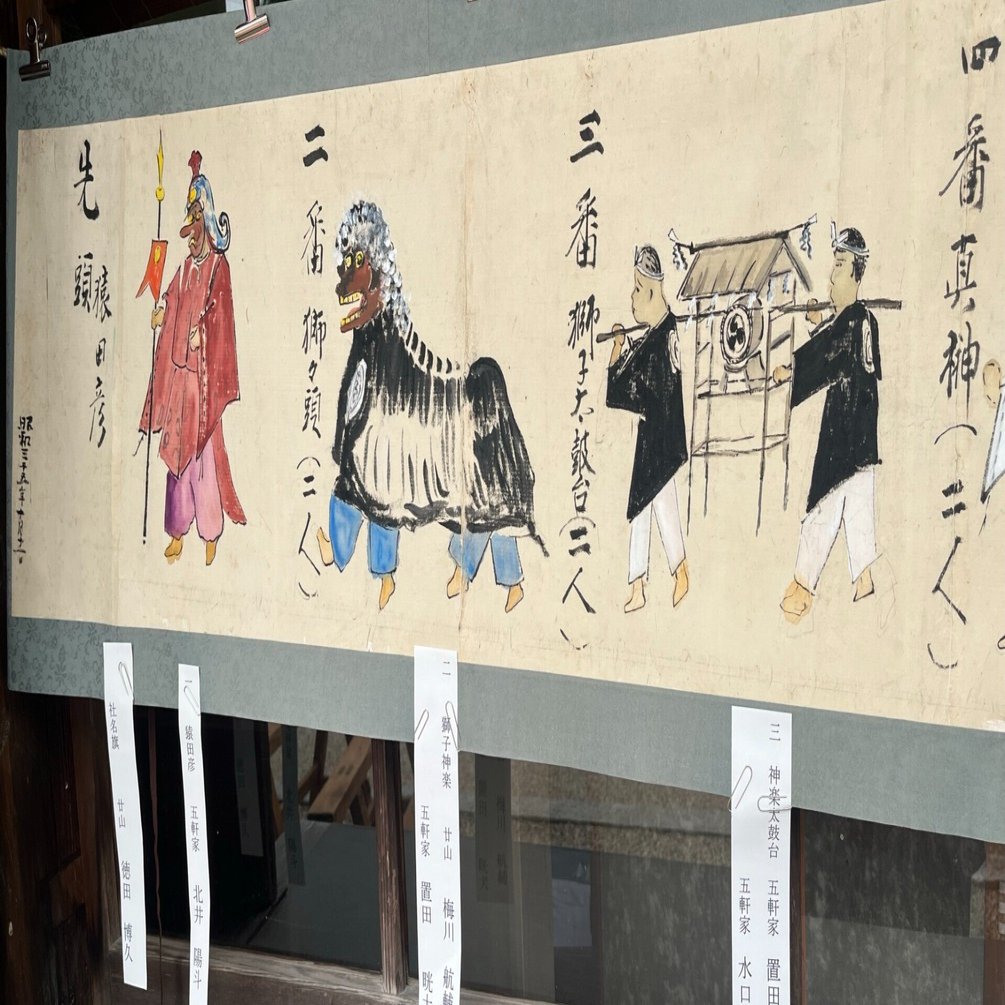 先頭
猿田彦
昭和三十五年十月十一日
二番 獅々頭(二人)
三番 獅子太鼓台(二人)
四番真榊(二人)
社名旗 廿山 徳田 博久
一 猿田彦 五軒家 北井 陽斗
二 獅子神楽 廿山 梅川 航輔
五軒家 置田 晄大
三 神楽太鼓台 五軒家 置田
五軒家 水口